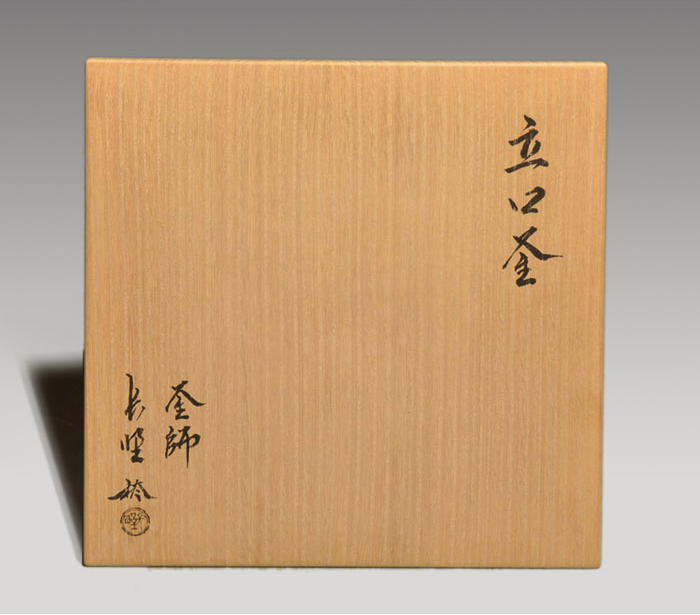 立口釜
釜師
長野